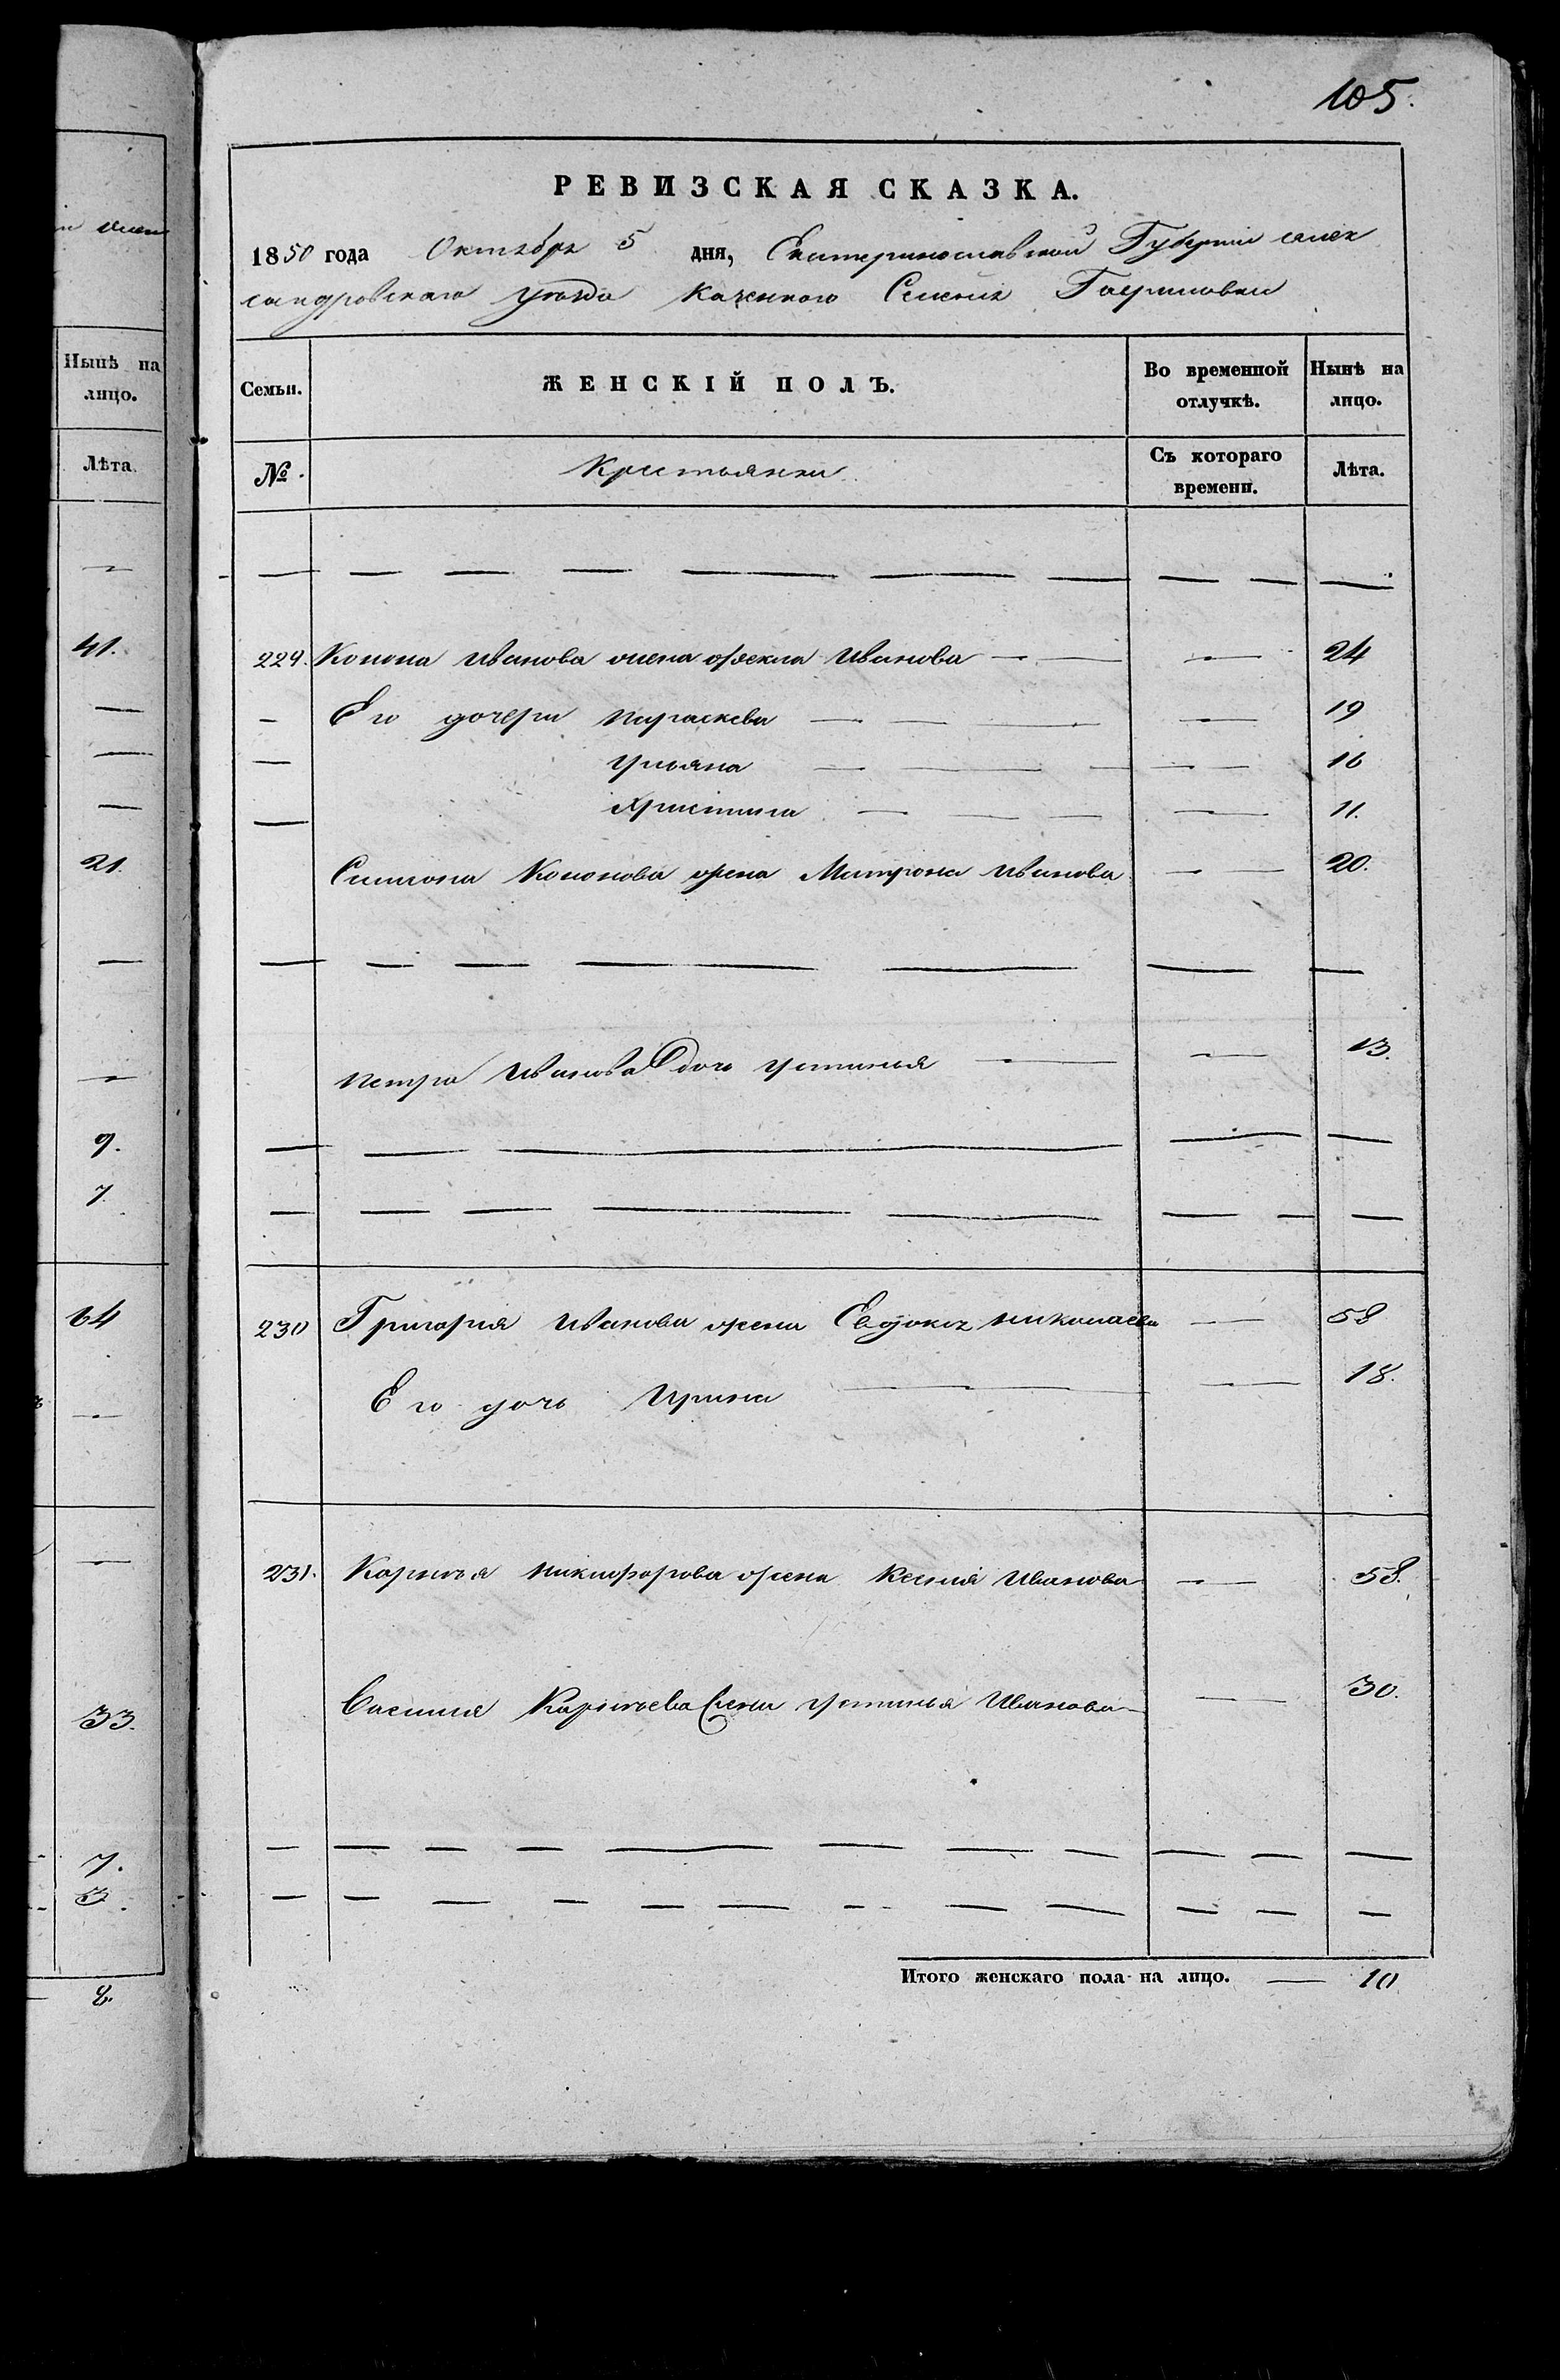 н жена
Нынѣ на
лицо.
Лѣта.
41.
21.
9.
7.
64
33.
7.
3.
8.
105.
РЕВИЗСКАЯ СКАЗКА.
1850 года Октября 5 дня, Екатеринославской Губерніи алек
сандровскаго уезда казенного Селенія Гавриловки
Семьи. ЖЕНСКІЙ ПОЛЪ. Во временной отлучкѣ. Нынѣ на лицо.
№ Крестьянки Съ котораго времени. Лѣта.
229. Конона Иванова жена Фекла Иванова — — — 24
— Его дочери Параскева — — — — 19
— Ульяна — — — — — 16
— Христина — — — — 11.
Симиона Кононова жена Матрона Иванова — — 20.
Петра Иванова дочь Устинья — — — 13.
230 Григория Иванова жена Евдокия Николаева — 58
Его дочь Ирина — — — 18.
231. Корнея Никифорова жена Ксения Иванова — 58.
Василия Корнеева жена Устинья Иванова — — 30.
Итого женскаго пола на лицо. — 10